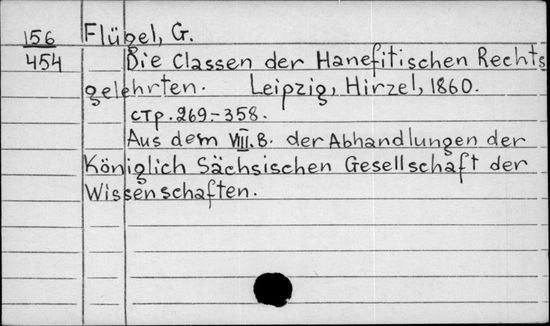 156 Flügel, G.
454 Die Classen der Hanefitischen Rechts
gelehrten. Leipzig, Hirzel, 1860.
стр. 269.-358.
Aus dem VIII. B. der Abhandlungen der
Königlich Sächsischen Gesellschaft der
Wissenschaften.